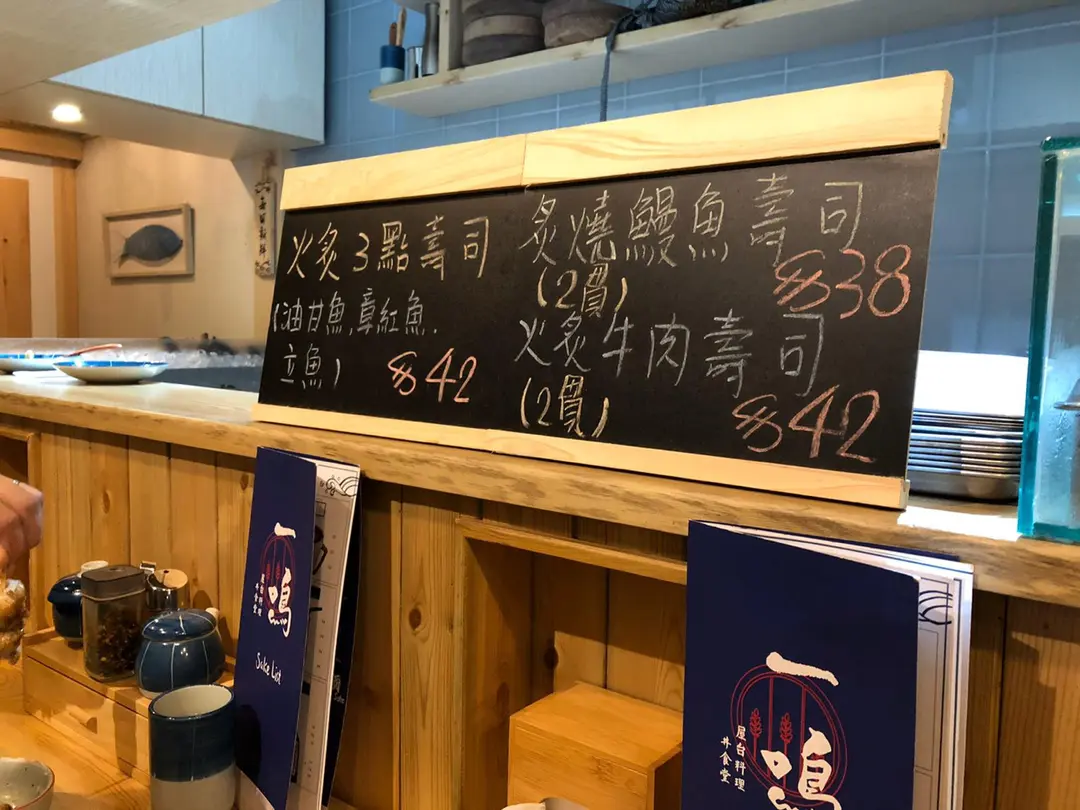 火炙3點壽司
(油甘魚,章紅魚,
立魚)
$42
炙燒鰻魚壽司
(2貫)
$38
火炙牛肉壽司
(2貫)
$42
一鳴
屋台料理
丼食堂
Sake List
一鳴
屋台料理
丼食堂